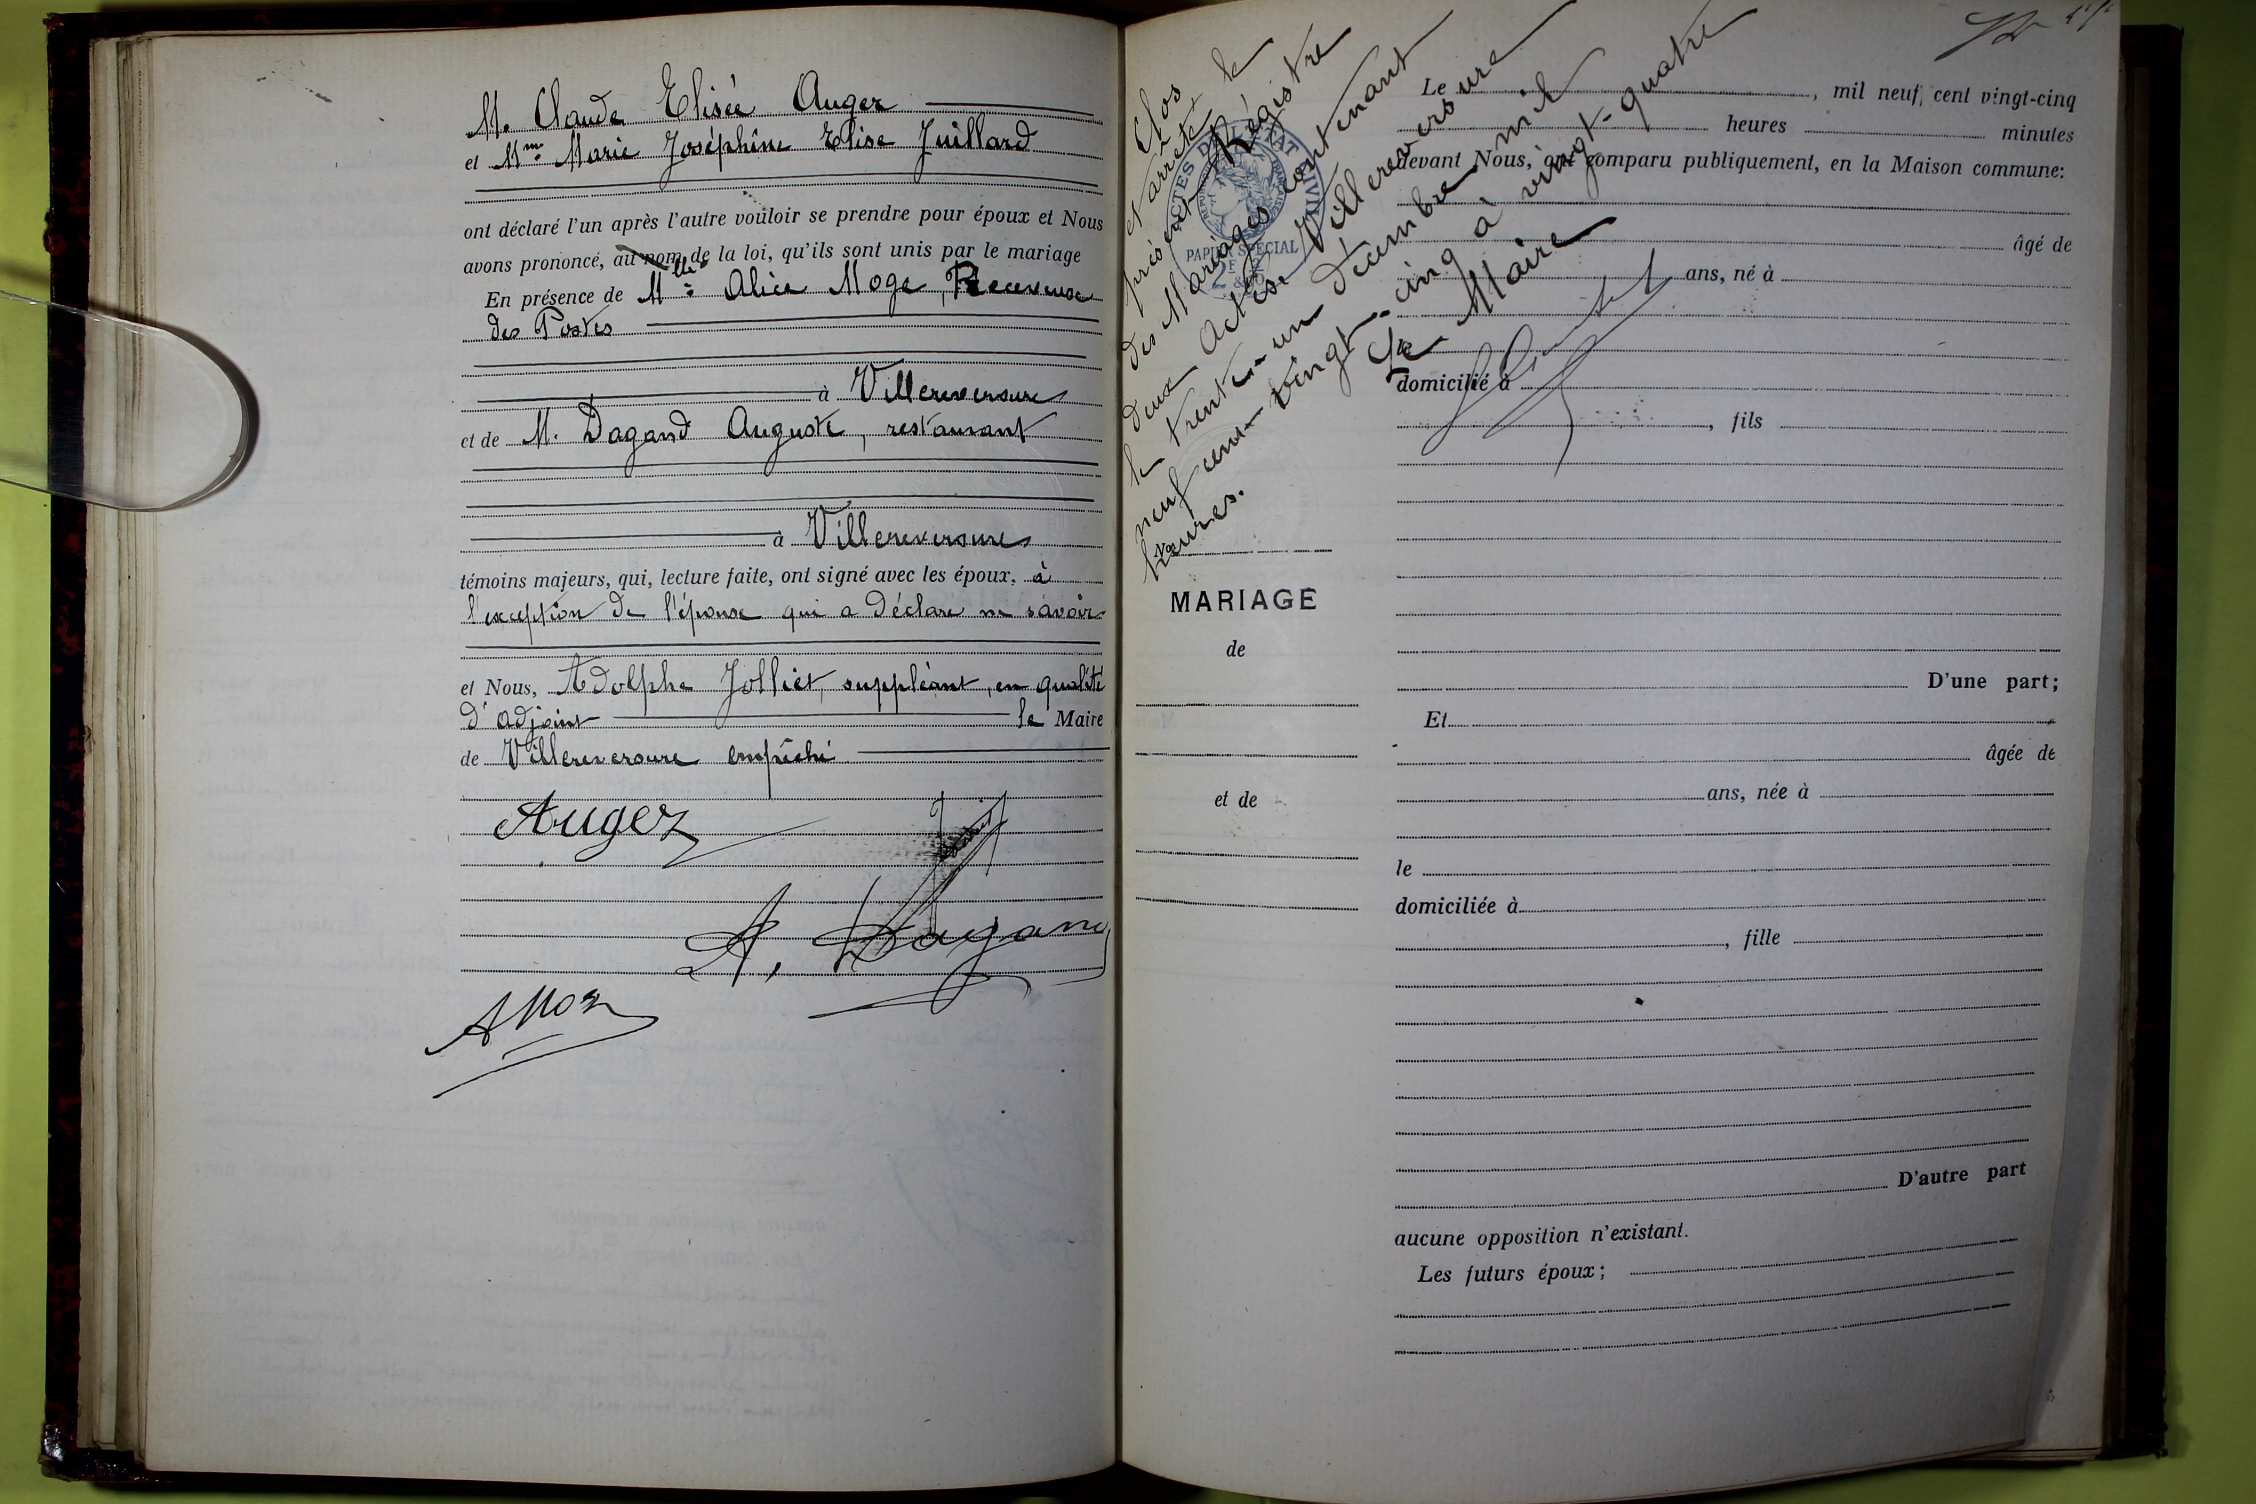 M. Claude Elisée Auger
et Mme Marie Joséphine Elise Juillard
ont déclaré l'un après l'autre vouloir se prendre pour époux et Nous
avons prononcé, au nom de la loi, qu'ils sont unis par le mariage
En présence de Mlle Alice Moge, Receveuse
des Postes
à Villereversure
et de M. Dagand Auguste, restaurant
à Villereversure
témoins majeurs, qui, lecture faite, ont signé avec les époux, à
l'exception de l'épouse qui a déclaré ne savoir
et Nous, Adolphe Jolliet, suppléant, en qualité
d'adjoint le Maire
de Villereversure empêché
Auger
A. Dagand
Clos
et arrêté le
présent Régistre
des Mariages contenant
deux actes. Villereversure
le trente-un décembre mil
neuf cent vingt-cinq à vingt-quatre
heures.
Le Maire
ACTES DE L'ETAT CIVIL
PAPIER SPECIAL
No
MARIAGE
de
et de
Le , mil neuf cent vingt-cinq
heures minutes
devant Nous, ont comparu publiquement, en la Maison commune:
âgé de
ans, né à
le
domicilié à
, fils
D'une part;
Et
âgée de
ans, née à
le
domiciliée à
, fille
D'autre part
aucune opposition n'existant.
Les futurs époux;